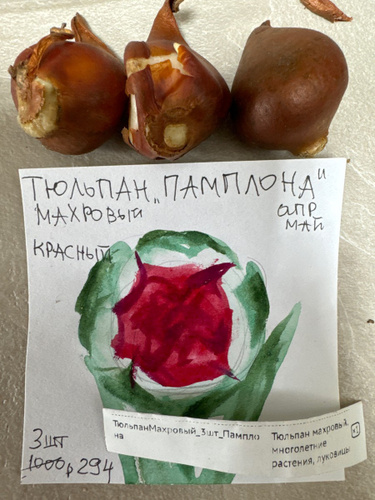 ТЮЛЬПАН „ПАМПЛОНА"
МАХРОВЫЙ
апр
МАЙ
КРАСНЫЙ
ТюльпанМахровый_3шт_Памплона
Тюльпан махровый, многолетние растения, луковицы
3шт
1000р 294